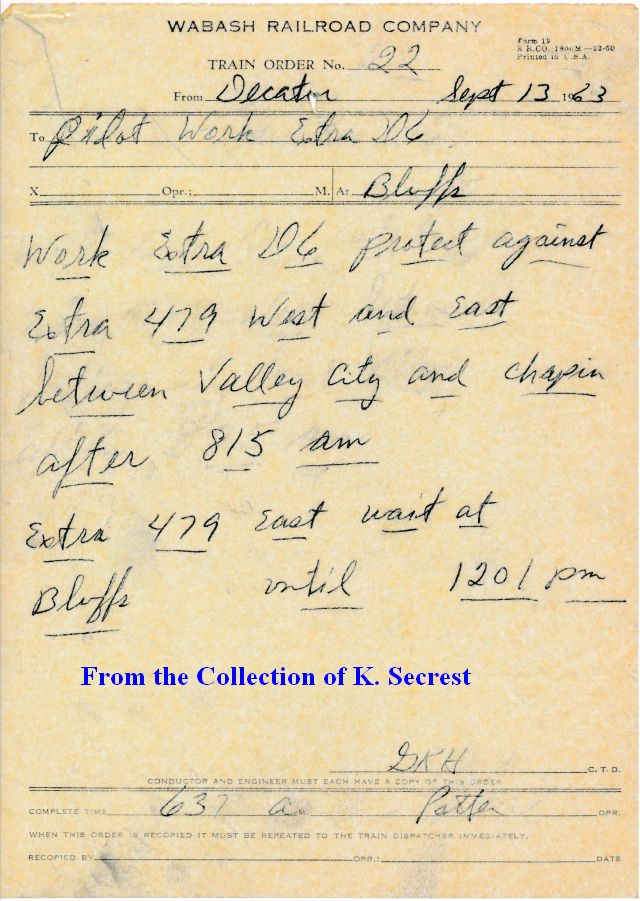 WABASH RAILROAD COMPANY
Form 19
R.B.CO. 1800M—12-60
Printed in U.S.A.
TRAIN ORDER No. 22
From Decatur Sept 13 1963
To Pilot Work Extra D6
X Opr.; M. At Bluffs
Work Extra D6 protect against
Extra 479 West and East
between Valley City and Chapin
after 815 am
Extra 479 East wait at
Bluffs until 1201 pm
From the Collection of K. Secrest
GKH C.T.D.
CONDUCTOR AND ENGINEER MUST EACH HAVE A COPY OF THIS ORDER
COMPLETE TIME 637 a M. Patten OPR.
WHEN THIS ORDER IS RECOPIED IT MUST BE REPEATED TO THE TRAIN DISPATCHER IMMEDIATELY.
RECOPIED BY OPR.: DATE